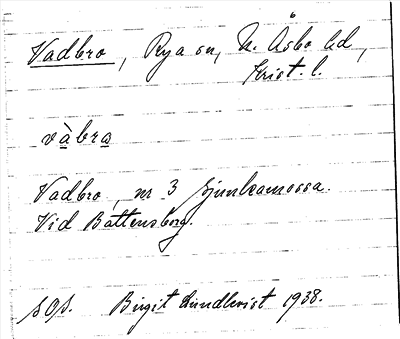 Vadbro, Rya sn, N. Åsbo hd,
Krist. l.
vàbra
Vadbro, nr 3 Ljunkamossa.
Vid Båttensborg.
sOs. Birgit Lundkvist 1938.